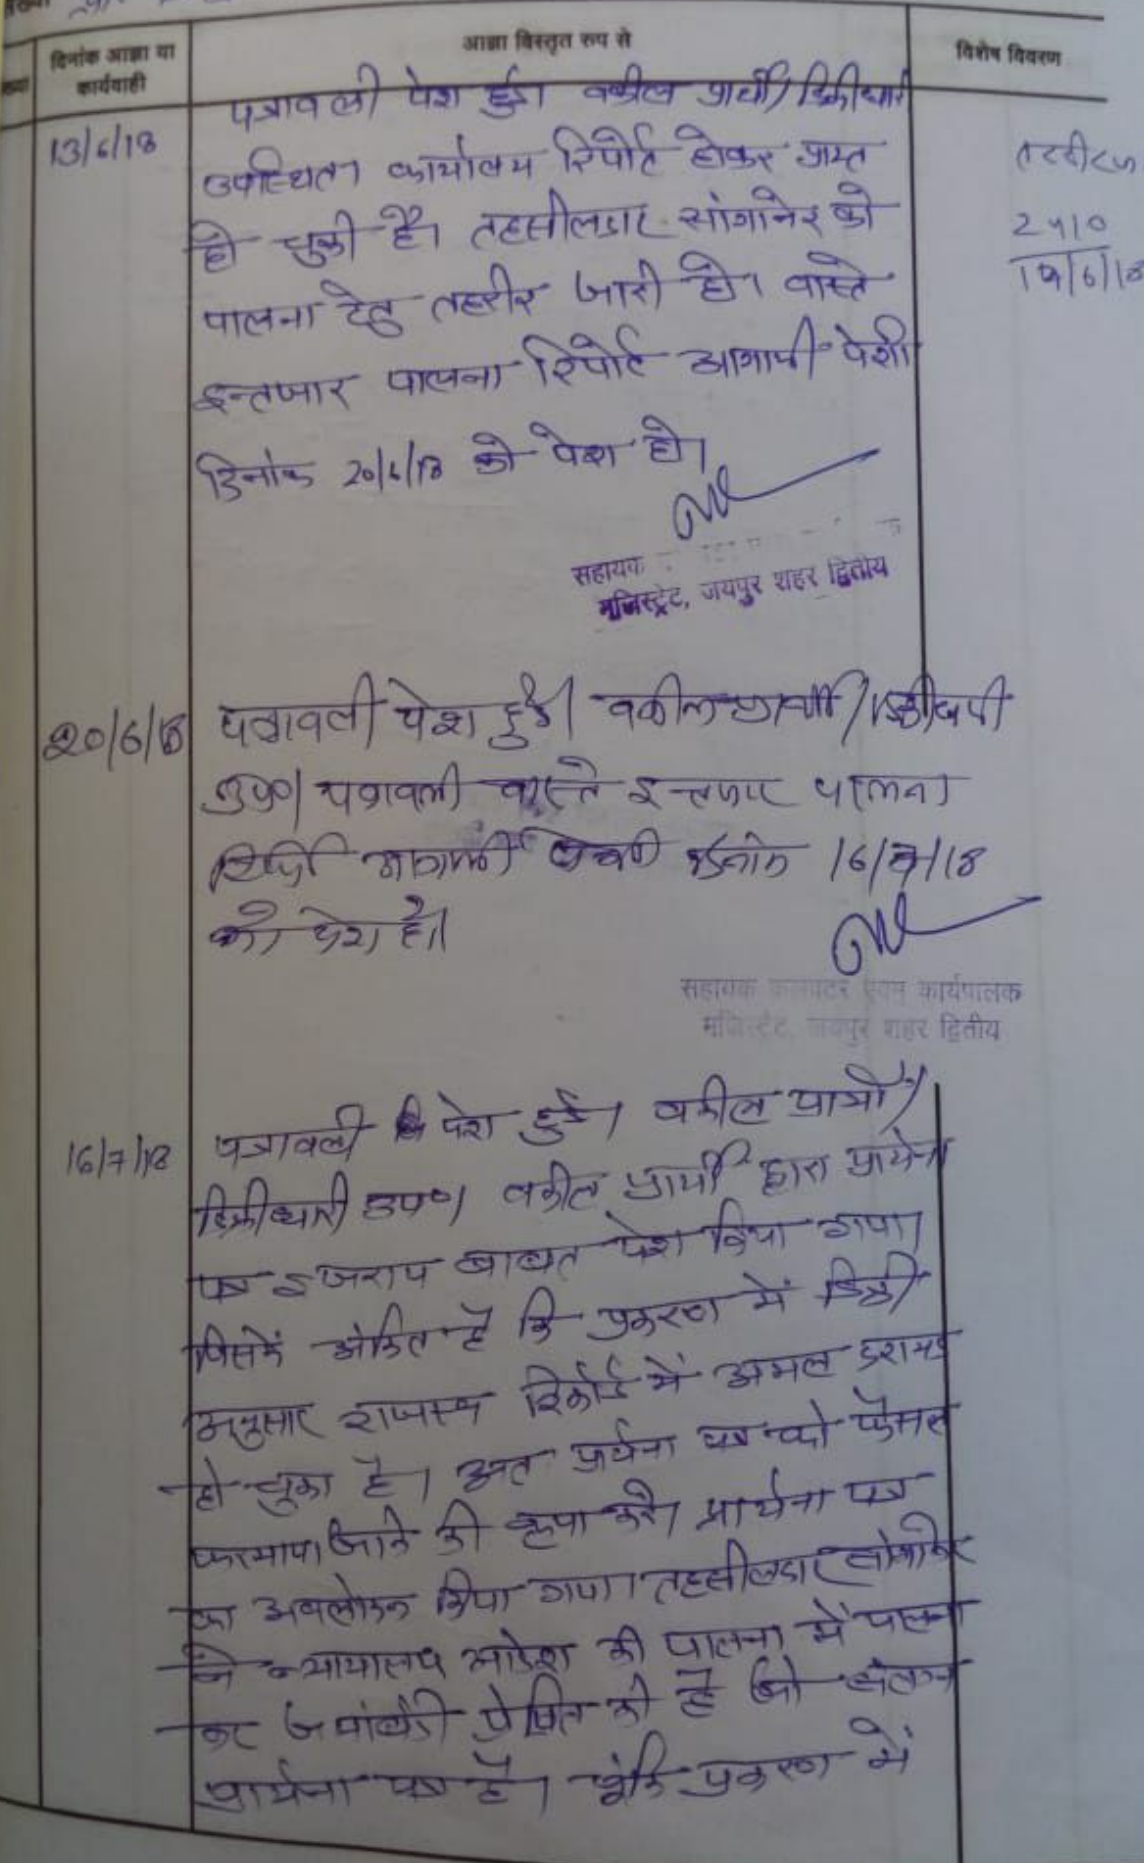 दिनांक आज्ञा या
कार्यवाही
आज्ञा विस्तृत रुप से
विशेष विवरण
13/6/18
पत्रावली पेश हुई। वकील प्रार्थी/डिक्रीधारी
उपस्थित। कार्यालय रिपोर्ट होकर प्राप्त
हो चुकी है। तहसीलदार सांगानेर को
पालना हेतु तहरीर जारी हो। वास्ते
इन्तजार पालना रिपोर्ट आगामी पेशी
दिनांक 20/6/18 को पेश हो।
2410
19/6/18
सहायक
मजिस्ट्रेट, जयपुर शहर द्वितीय
20/6/18
पत्रावली पेश हुई। वकील प्रार्थी/डिक्रीधारी
उप0। पत्रावली वास्ते इन्तजार पालना
रिपोर्ट आगामी पेशी दिनांक 16/7/18
को पेश हो।
सहायक कलक्टर एवम कार्यपालक
मजिस्ट्रेट, जयपुर शहर द्वितीय
16/7/18
पत्रावली पेश हुई। वकील प्रार्थी/
डिक्रीधारी उप0। वकील प्रार्थी द्वारा प्रार्थना
पत्र इजराय बाबत पेश किया गया।
जिसमें अंकित है कि प्रकरण में डिक्री
अनुसार राजस्व रिकोर्ड में अमल दरामद
हो चुका है। अत प्रार्थना पत्र को फैसल
फरमाया जाने की कृपा करें। प्रार्थना पत्र
का अवलोकन किया गया। तहसीलदार सांगानेर
ने न्यायालय आदेश की पालना में पालना
कर जमांबंदी प्रेषित की है जो संलग्न
प्रार्थना पत्र है। चूंकि प्रकरण में